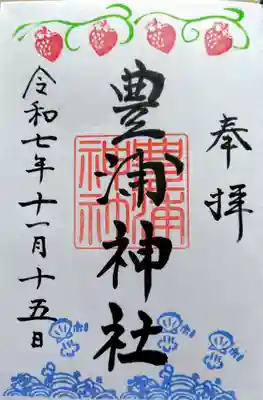 奉拝
豊浦神社
豊浦神社
令和七年十一月十五日